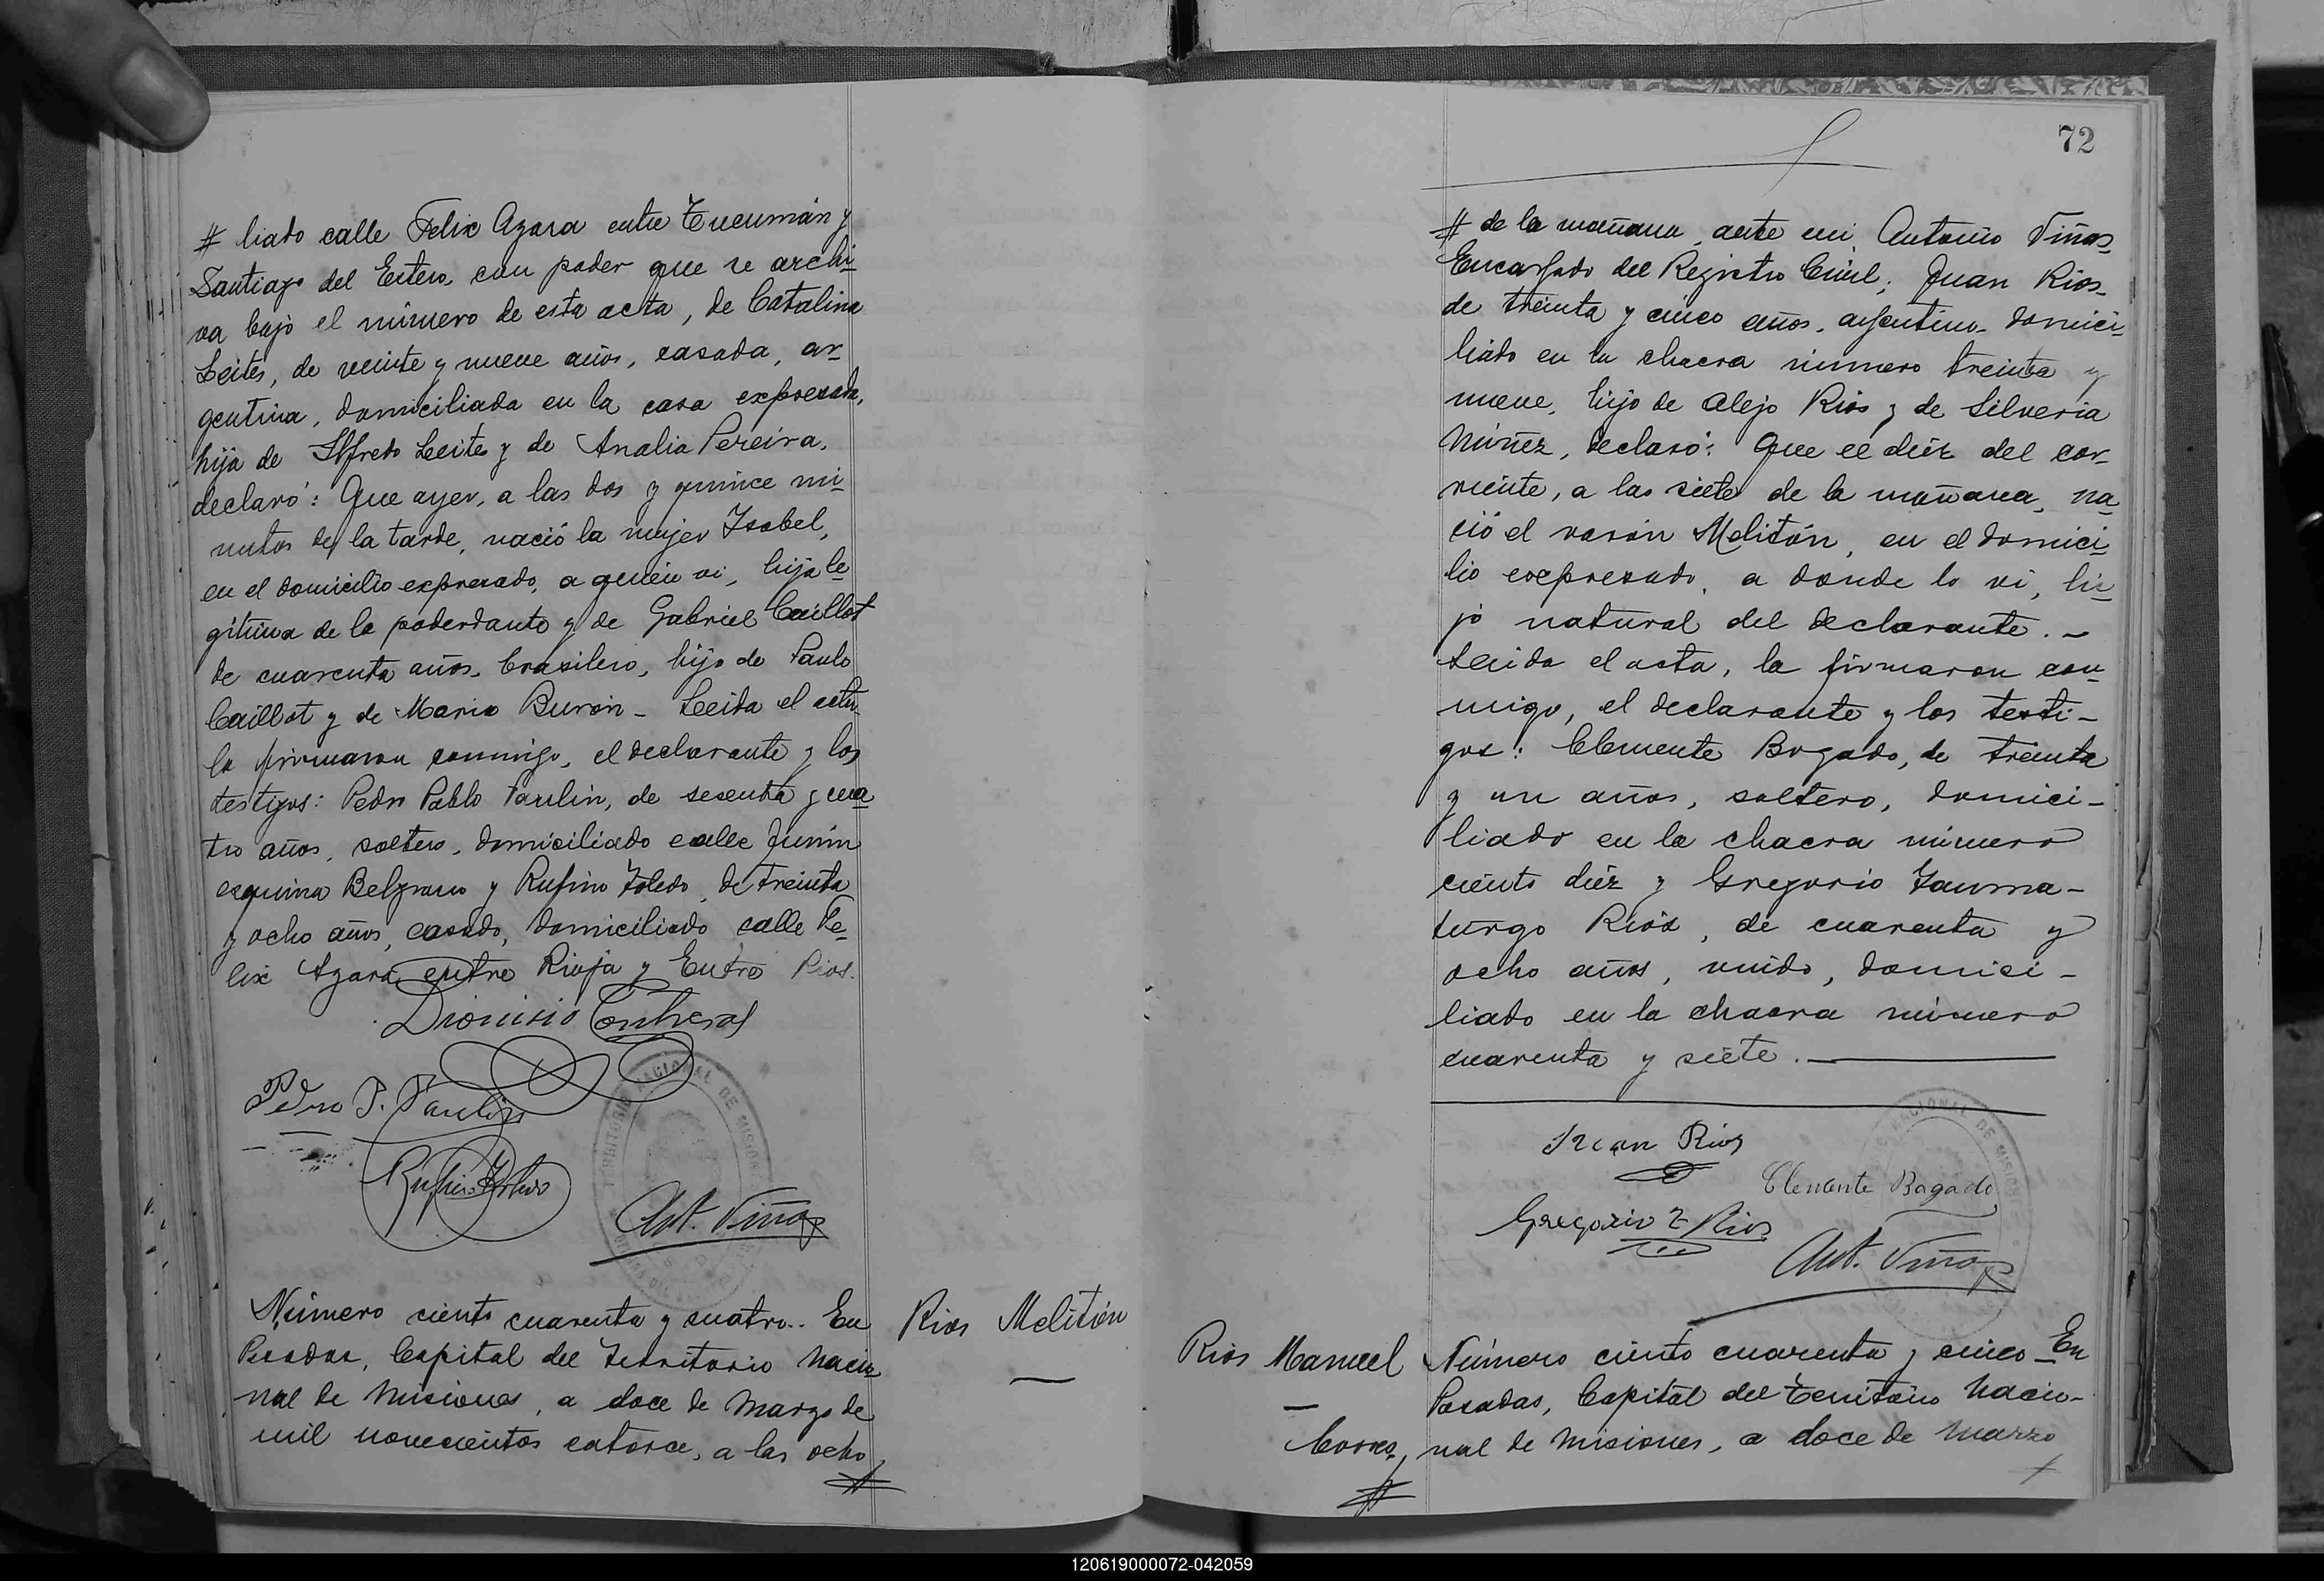 # liado calle Felix Azara entre Tucumán y
Santiago del Estero, con poder que se archi-
va bajo el número de esta acta, de Catalina
Leites, de veinte y nueve años, casada, ar-
gentina, domiciliada en la casa expresada,
hija de Alfredo Leites y de Analia Pereira,
declaró: Que ayer, a las dos y quince mi-
nutos de la tarde, nació la mujer Isabel,
en el domicilio expresado, a quien vi, hija le-
gitima de la poderdante y de Gabriel Caillot
de cuarenta años, brasilero, hijo de Paulo
Caillot y de Maria Buron - Leida el acta,
la firmaron conmigo, el declarante y los
testigos: Pedro Pablo Paulin, de sesenta y cua-
tro años, soltero, domiciliado calle Junin
esquina Belgrano y Rufino Toledo, de treinta
y ocho años, casado, domiciliado calle Fe-
lix Azara entre Rioja y Entre Rios.
Dionisio Contreras
Pedro P. Paulin
Rufino Toledo
Ant. Viñas
Número ciento cuarenta y cuatro.. En
Posadas, Capital del Territorio Nacio-
nal de Misiones, a doce de Marzo de
mil novecientos catorce, a las ocho
#
Rios Melitón
72
# de la mañana, ante mi, Antonio Viñas
Encargado del Registro Civil; Juan Rios
de treinta y cinco años, argentino, domici-
liado en la chacra número treinta y
nueve, hijo de Alejo Rios y de Silveria
Núñez, declaró: Que el diéz del cor-
riente, a las siete de la mañana, na-
ció el varón Melitón, en el domici-
lio expresado, a donde lo vi, hi-
jo natural del declarante. -
Leida el acta, la firmaron con-
migo, el declarante y los testi-
gos: Clemente Bogado, de treinta
y un años, soltero, domici-
liado en la chacra número
ciento diéz y Gregorio Tauma-
turgo Rios, de cuarenta y
ocho años, viudo, domici-
liado en la chacra número
cuarenta y siete.
Juan Rios
Clemente Bogado
Gregorio T Rios
Ant. Viñas
Rios Manuel
#
Número ciento cuarenta y cinco - En
Posadas, Capital del Territorio Nacio-
nal de Misiones, a doce de Marzo
120619000072-042059